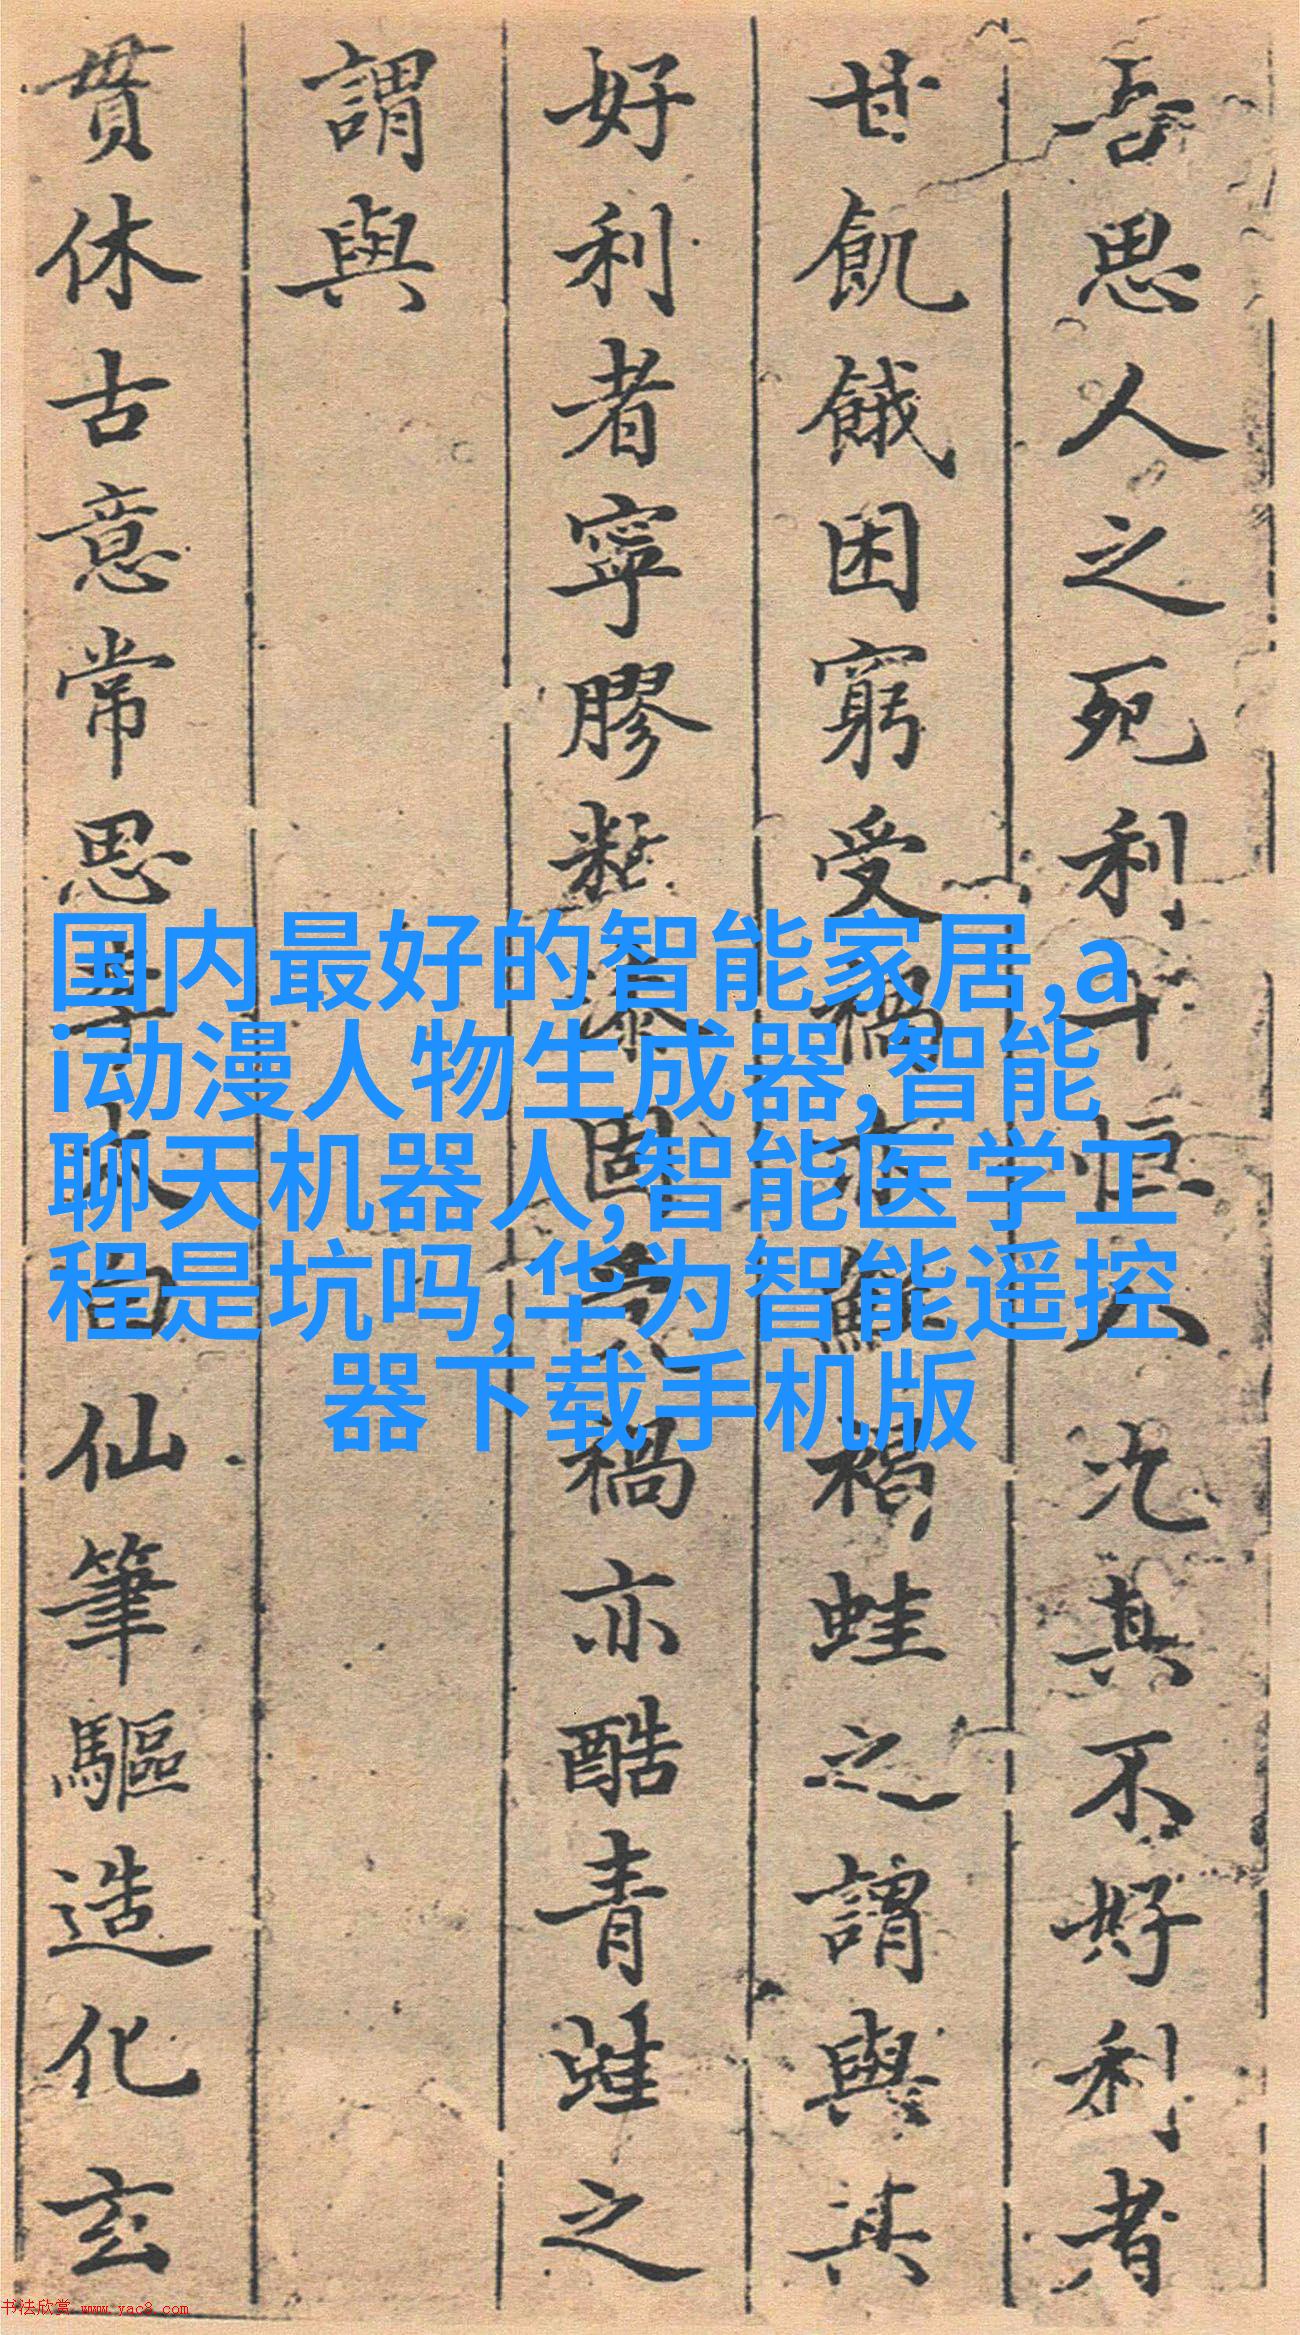 吾思人之死利十恒八況其不好利者
甘飢餓困窮受禍亦鮮禍蛙之謂與其
好利者寧膠黏漆固禍亦酷青蛙之
謂與
貫休古意常思李太白仙筆驅造化玄
国内最好的智能家居,a
i动漫人物生成器,智能
聊天机器人,智能医学工
程是坑吗,华为智能遥控
器下载手机版
书法欣赏 www.yac8.com